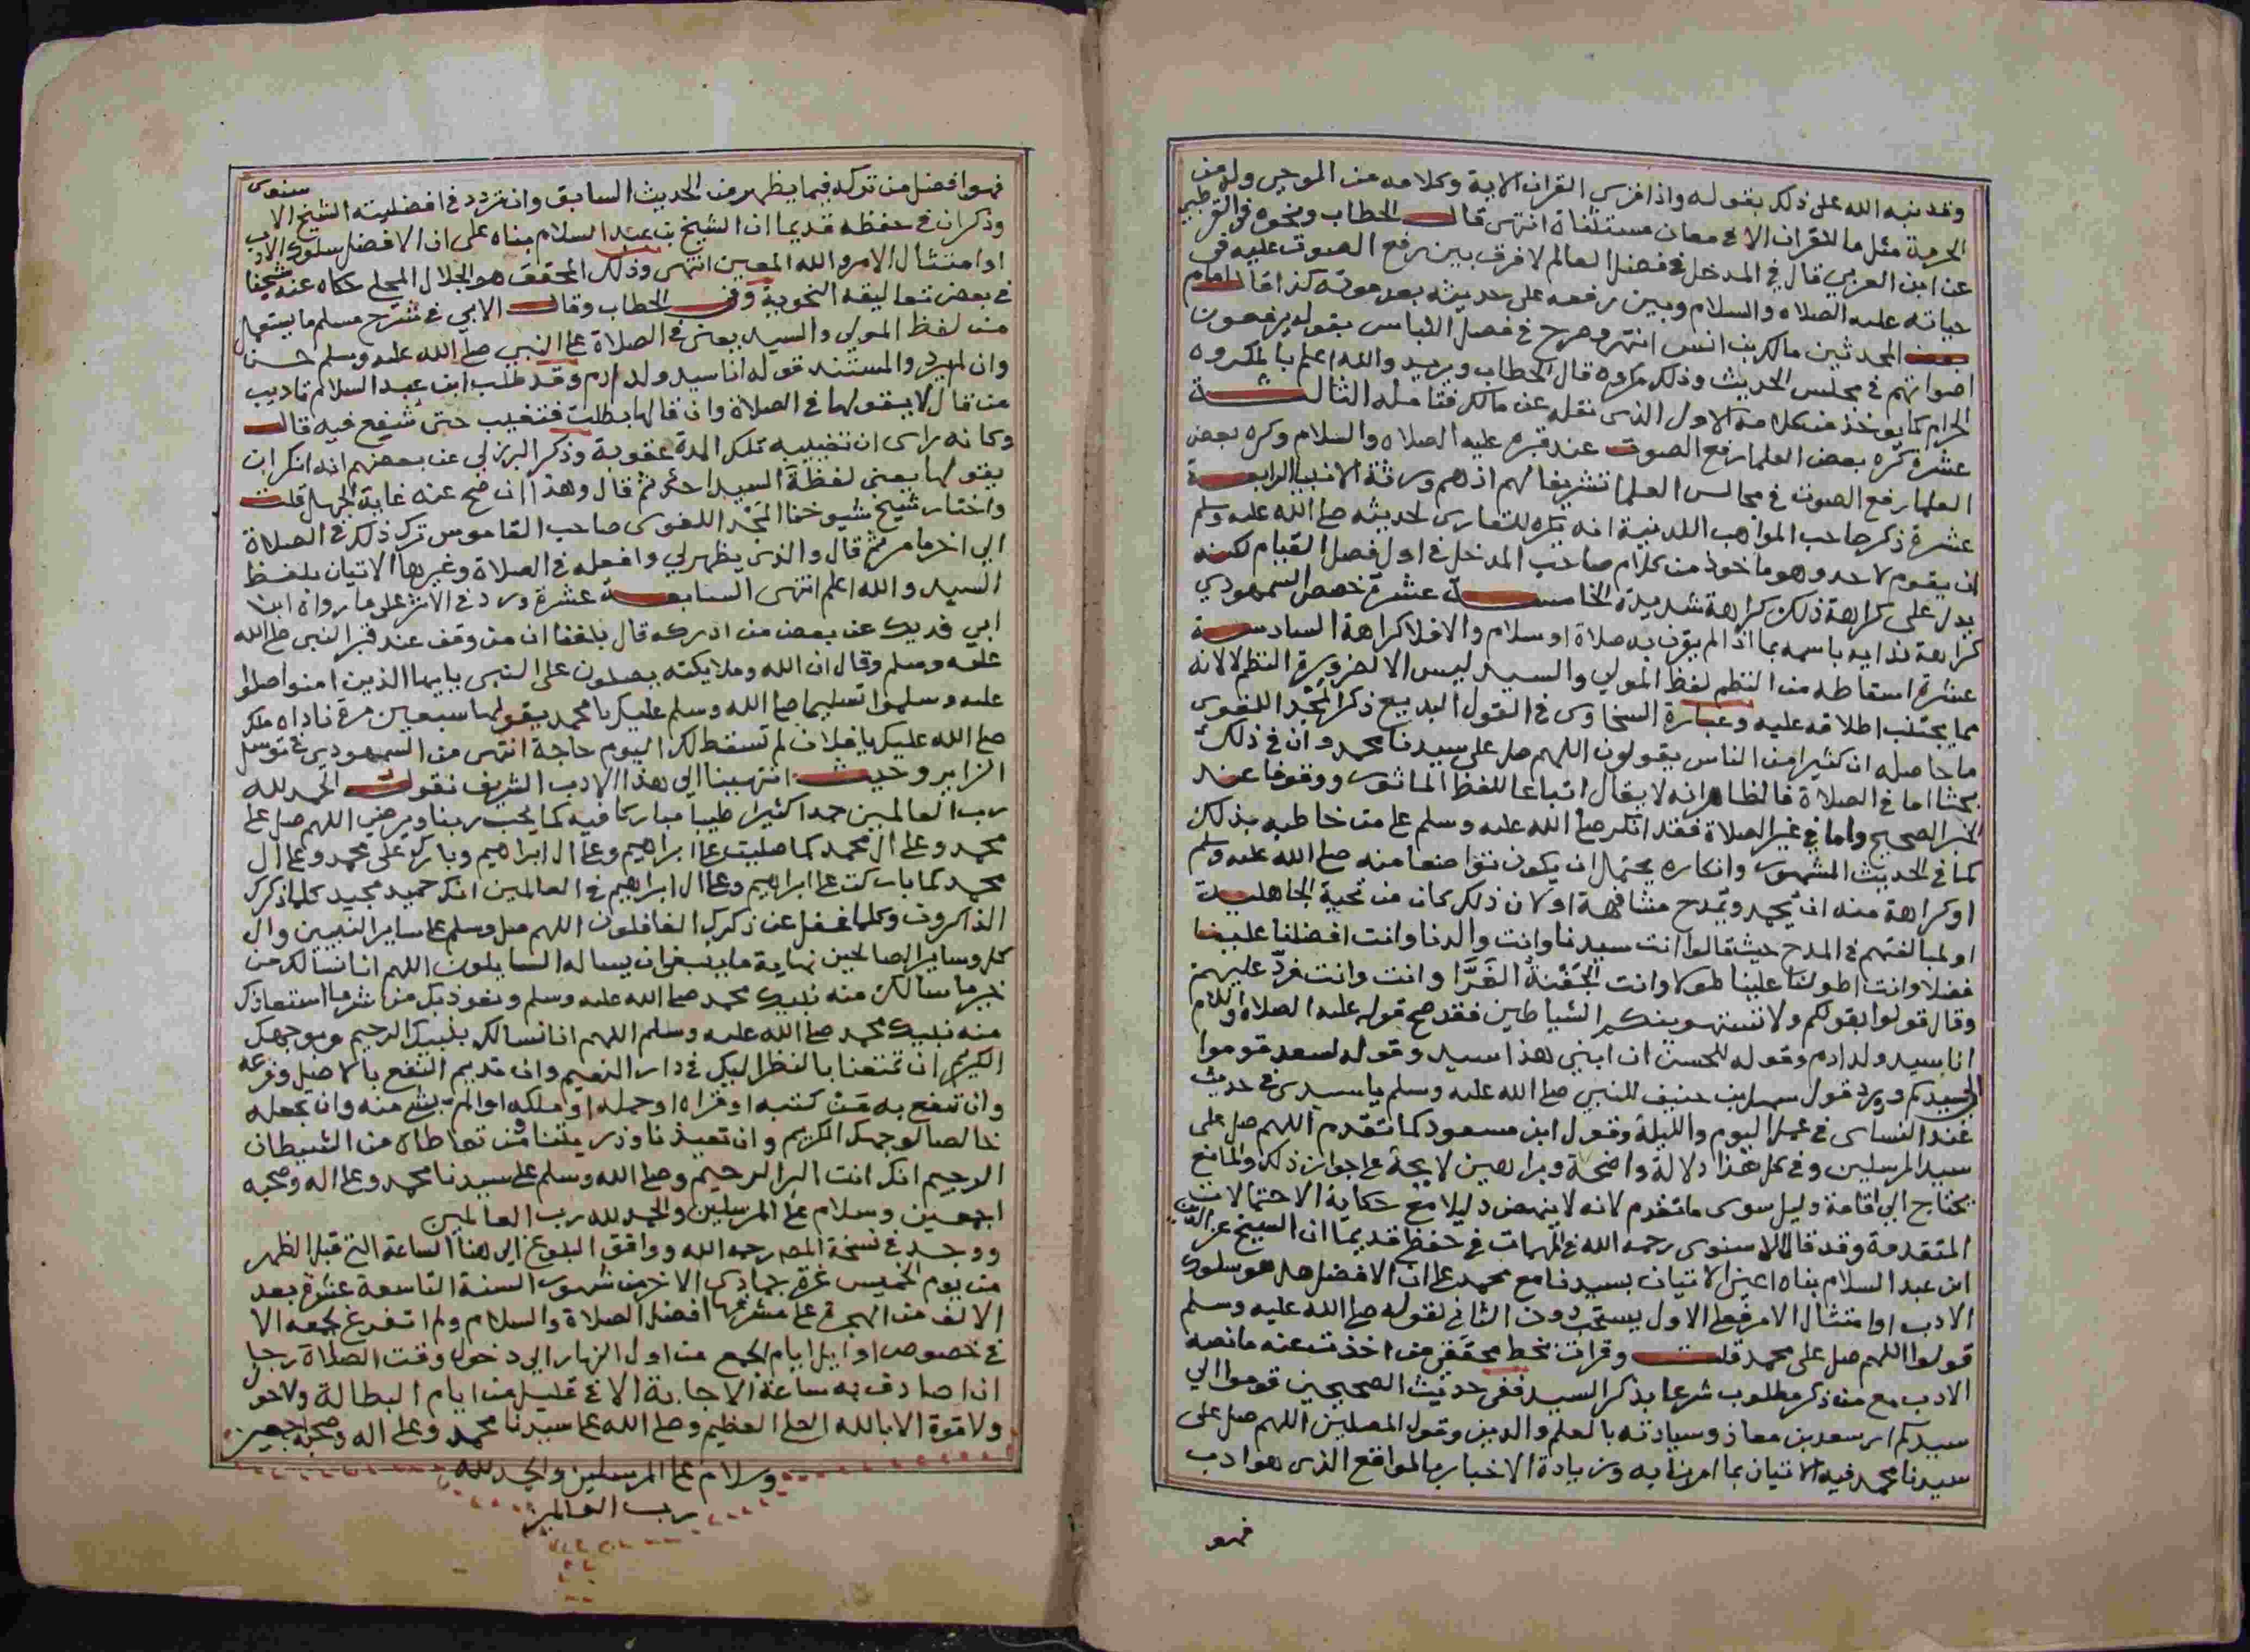 وقد نبه الله على ذلك بقوله واذا قرئ القران الاية وكلامه من الموحى وله من
الحرمة مثل ما للقران الا في معان مستثناة انتهى قال الحطاب ونحوه في القرطبي
عن ابن العربي قال في المدخل في فصل العالم لا فرق بين رفع الصوت عليه في
حياته عليه الصلاه والسلام وبين رفعه على حديثه بعد موته كذا قال امام
المحدثين مالك بن انس انتهى وصرح في فصل اللباس بقوله يرفعون
اصواتهم في مجلس الحديث وذلك مكروه قال الحطاب ويريد والله اعلم بالمكروه
الحرام كما يوخذ من كلامه الاول الذى نقله عن مالك فتامله الثالثة
عشرة كره بعض العلما رفع الصوت عند قبره عليه الصلاه والسلام وكره بعض
العلما رفع الصوت في مجالس العلما تشريفا لهم اذ هم ورثة الانبيا الرابعة
عشرة ذكر صاحب المواهب اللدنية انه يكره للقارى لحديثه صلى الله عليه وسلم
ان يقوم لاحد وهو ماخوذ من كلام صاحب المدخل في اول فصل القيام لكنه
يدل على كراهة ذلك كراهة شديدة الخامسة عشرة خصص السمهودي
كراهة ندايه باسمه بما اذا لم يقرن به صلاة او سلام والا فلا كراهة السادسة
عشرة اسقاطه من النظم لفظ المولى والسيد ليس الا لضرورة النظم لا لانه
مما يجتنب اطلاقه عليه وعبارة السخاوى في القول البديع ذكر المجد اللغوى
ما حاصله ان كثيرا من الناس يقولون اللهم صل على سيدنا محمد وان في ذلك
بحثا اما في الصلاة فالظاهر انه لا يقال اتباعا للفظ الماثور ووقوفا عند
الخبر الصحيح واما في غير الصلاة فقد انكر صلى الله عليه وسلم على من خاطبه بذلك
كما في الحديث المشهور وانكاره يحتمل ان يكون تواضعا منه صلى الله عليه وسلم
او كراهة منه ان يحمد ويمدح مشافهة او لان ذلك كان من تحية الجاهلية
او لمبالغتهم في المدح حيث قالوا انت سيدنا وانت والدنا وانت افضلنا علينا
فضلا وانت اطولنا علينا طولا وانت الجفنة الغرا وانت وانت فرد عليهم
وقال قولوا بقولكم ولا تستهوينكم الشياطين فقد صح قوله عليه الصلاة والسلام
انا سيد ولد ادم وقوله للحسن ان ابني هذا سيد وقوله لسعد قوموا
الى سيدكم وورد قول سهل بن حنيف للنبي صلى الله عليه وسلم يا سيدى في حديث
عند النساى في عمل اليوم والليلة وقول ابن مسعود كما تقدم اللهم صل على
سيد المرسلين وفي كل هذا دلالة واضحة وبراهين لايحة على جواز ذلك والمانع
يحتاج الى اقامة دليل سوى ما تقدم لانه لا ينهض دليلا مع حكاية الاحتمالات
المتقدمة وقد قال الاسنوى رحمه الله في المهمات في حفظي قديما ان الشيخ عز الدين
ابن عبد السلام بناه اعني الاتيان بسيدنا مع محمد على ان الافضل هل هو سلوك
الادب او امتثال الامر فعلى الاول يستحب دون الثاني لقوله صلى الله عليه وسلم
قولوا اللهم صل على محمد قلت وقرات بخط محقق من اخذت عنه ما نصه
الادب مع من ذكر مطلوب شرعا بذكر السيد ففي حديث الصحيحين قوموا الى
سيدكم اى سعد بن معاذ وسيادته بالعلم والدين وقول المصلين اللهم صل على
سيدنا محمد فيه الاتيان بما امرنا به وزيادة الاخبار بالواقع الذى هو ادب
فهو
فهو افضل من تركه فيما يظهر من الحديث السابق وان تردد في افضليته الشيخ الاسنوى
وذكر ان في حفظه قديما ان الشيخ بن عبد السلام بناه على ان الافضل سلوك الادب
او امتثال الامر والله المعين انتهى وذلك المحقق هو الجلال المحلي حكاه عنه شيخنا
في بعض تعاليقه النحوية وفي الحطاب وقال الابي في شرح مسلم ما يستعمل
من لفظ المولى والسيد يعنى في الصلاة على النبي صلى الله عليه وسلم حسن
وان لم يرد والمستند قوله انا سيد ولد ادم وقد طلب ابن عبد السلام تاديب
من قال لا يقولها في الصلاة وان قالها بطلت فتغيب حتى شفع فيه قال
وكانه راى ان تغييبه تلك المدة عقوبة وذكر البرزلي عن بعضهم انه انكر ان
يقولها يعنى لفظة السيد احد ثم قال وهذا ان صح عنه غاية الجهل قلت
واختار شيخ شيوخنا المجد اللغوى صاحب القاموس ترك ذلك في الصلاة
الى اخر ما مر ثم قال والذى يظهر لي وافعله في الصلاة وغيرها الاتيان بلفظ
السيد والله اعلم انتهى السابعة عشرة ورد في الاثر على ما رواه ابن
ابي فديك عن بعض من ادركه قال بلغنا ان من وقف عند قبر النبي صلى الله
عليه وسلم وقال ان الله وملايكته يصلون على النبى يايها الذين امنوا صلوا
عليه وسلموا تسليما صلى الله وسلم عليك يا محمد يقولها سبعين مرة ناداه ملك
صلى الله عليك يا فلان لم تسقط لك اليوم حاجة انتهى من السمهودي في توسل
الزاير وحيث انتهينا الى هذا الادب الشريف نقول الحمد لله
رب العالمين حمدا كثيرا طيبا مباركا فيه كما يحب ربنا ويرضى اللهم صل على
محمد وعلى ال محمد كما صليت على ابراهيم وعلى ال ابراهيم وبارك على محمد وعلى ال
محمد كما باركت على ابراهيم وعلى ال ابراهيم في العالمين انك حميد مجيد كلما ذكرك
الذاكرون وكلما غفل عن ذكرك الغافلون اللهم صل وسلم على ساير النبيين وال
كل وساير الصالحين نهاية ما ينبغى ان يساله السايلون اللهم انا نسالك من
خير ما سالك منه نبيك محمد صلى الله عليه وسلم ونعوذ بك من شر ما استعاذك
منه نبيك محمد صلى الله عليه وسلم اللهم انا نسالك بنبيك الرحيم وبوجهك
الكريم ان تمتعنا بالنظر اليك في دار النعيم وان تديم النفع بالاصل وفرعه
وان تنفع به من كتبه او قراه او حمله او ملكه او الم بشى منه وان تجعله
خالصا لوجهك الكريم وان تعيذنا وذريتنا ومن تعاطاه من الشيطان
الرجيم انك انت البر الرحيم وصلى الله وسلم على سيدنا محمد وعلى اله وصحبه
اجمعين وسلام على المرسلين والحمد لله رب العالمين
ووجد في نسخة المص رحمه الله ووافق البلوغ الى هنا الساعة التي قبل الظهر
من يوم الخميس غرة جمادى الاخر من شهور السنة التاسعة عشرة بعد
الالف من الهجرة على مشرفها افضل الصلاة والسلام ولم اتفرغ لجمعه الا
في خصوص اوايل ايام الجمع من اول النهار الى دخول وقت الصلاة رجا
ان اصادف به ساعة الاجابة الا في قليل من ايام البطالة ولا حول
ولا قوة الا بالله العلى العظيم وصلى الله على سيدنا محمد وعلى اله وصحبه اجمعين
وسلام على المرسلين والحمد لله
رب العالمين